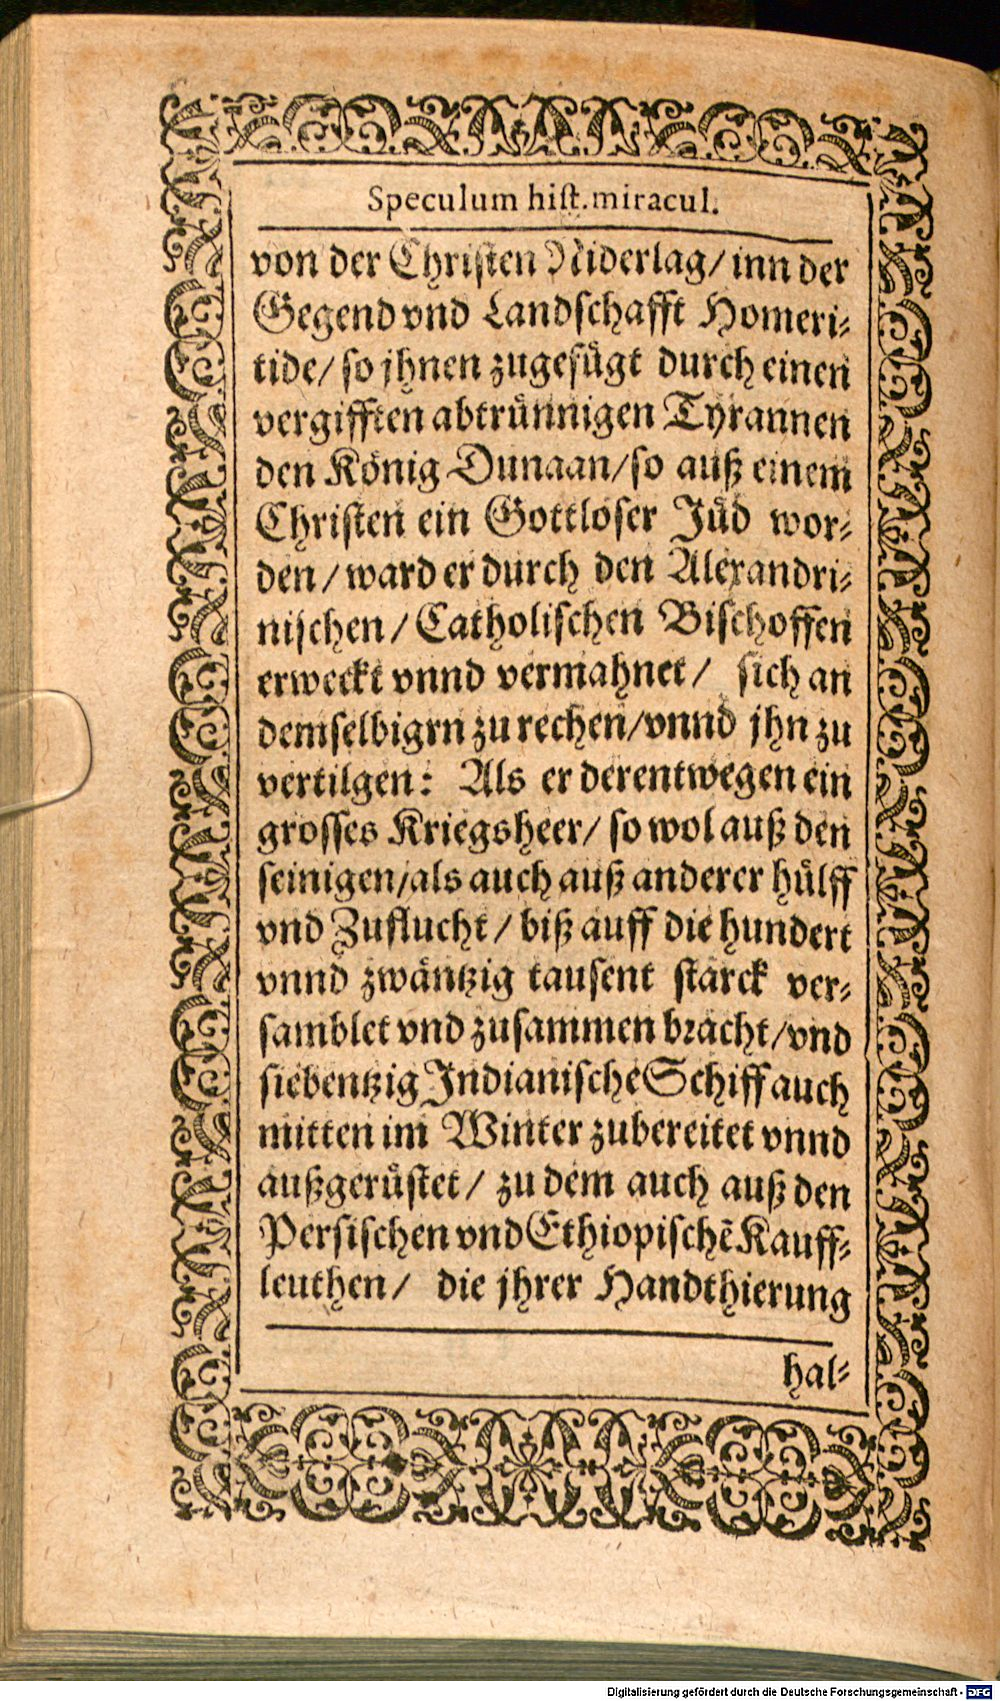 Speculum hist. miracul.
von der Christen Niderlag/ inn der
Gegend vnd Landschafft Homeri-
tide/ so jhnen zugefügt durch einen
vergifften abtrünnigen Tyrannen
den König Dunaan/ so auß einem
Christen ein Gottloser Jüd wor-
den/ ward er durch den Alexandri-
nischen/ Catholischen Bischoffen
erweckt vnnd vermahnet/ sich an
demselbigrn zu rechen/ vnnd jhn zu
vertilgen: Als er derentwegen ein
grosses Kriegsheer/ so wol auß den
seinigen/ als auch auß anderer hülff
vnd Zuflucht/ biß auff die hundert
vnnd zwäntzig tausent starck ver-
samblet vnd zusammen bracht/ vnd
siebentzig Indianische Schiff auch
mitten im Winter zubereitet vnnd
außgerüstet/ zu dem auch auß den
Persischen vnd Ethiopischẽ Kauff-
leuthen/ die jhrer Handthierung
hal-
Digitalisierung gefördert durch die Deutsche Forschungsgemeinschaft - DFG